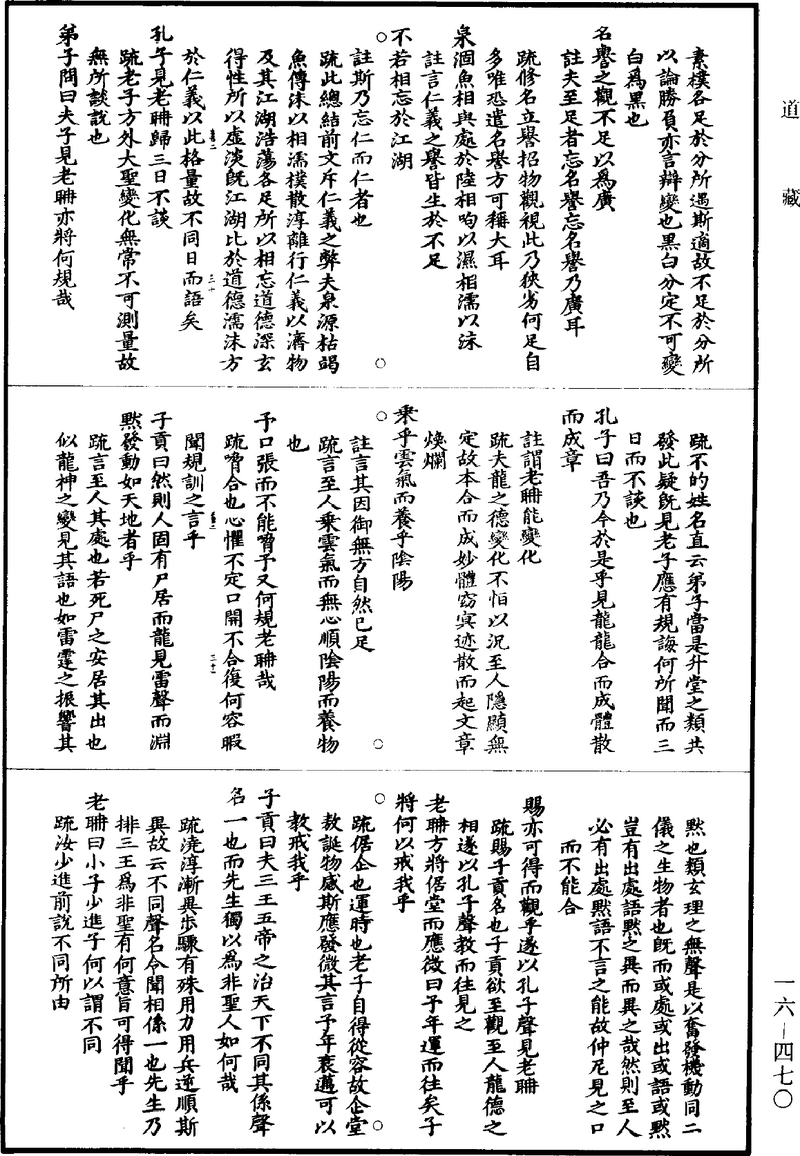 道藏
素樸各足於分所遇斯適故不足於分所
以論勝負亦言辯變也黑白分定不可變
白為黒也
名譽之觀不足以為廣
註夫至足者忘名譽忘名譽乃廣耳
疏修名立譽招物觀視此乃狹劣何足自
多唯忘遣名譽方可稱大耳
泉涸魚相與處於陸相呴以濕相濡以沫
註言仁義之譽皆生於不足
不若相忘於江湖
註斯乃忘仁而仁者也
疏此總結前文斥仁義之弊夫泉源枯竭
魚傳沫以相濡樸散淳離行仁義以濟物
及其江湖浩蕩各足所以相忘道德深玄
得性所以虛淡旣江湖比於道德濡沫方
於仁義以此格量故不同日而語矣
三十
孔子見老聃歸三日不談
疏老子方外大聖變化無常不可測量故
無所談說也
弟子問曰夫子見老聃亦將何規哉
疏不的姓名直云弟子當是升堂之類共
發此疑旣見老子應有規誨何所聞而三
日而不談也
孔子曰吾乃今於是乎見龍龍合而成體散
而成章
註謂老聃能變化
疏夫龍之德變化不恒以況至人隱顯無
定故本合而成妙體窈冥迹散而起文章
煥爛
乘乎雲氣而養乎陰陽
註言其因御無方自然已足
疏言至人乘雲氣而無心順陰陽而養物
也
予口張而不能嗋予又何規老聃哉
疏嗋合也心懼不定口開不合復何容暇
聞規訓之言乎
三十一
子貢曰然則人固有尸居而龍見雷聲而淵
黙發動如天地者乎
疏言至人其處也若死尸之安居其出也
似龍神之變見其語也如雷霆之振響其
黙也類玄理之無聲是以奮發機動同二
儀之生物者也旣而或處或出或語或黙
豈有出處語黙之異而異之哉然則至人
必有出處黙語不言之能故仲尼見之口
而不能合
賜亦可得而觀乎遂以孔子聲見老聃
疏賜子貢名也子貢欲至觀至人龍德之
相遂以孔子聲教而往見之
老聃方將倨堂而應微曰予年運而往矣子
將何以戒我乎
疏倨企也運時也老子自得從容故企堂
敖誕物感斯應發微其言予年衰邁可以
教戒我乎
子貢曰夫三王五帝之治天下不同其係聲
名一也而先生獨以為非聖人如何哉
疏澆淳漸異步驟有殊用力用兵逆順斯
異故云不同聲名令聞相係一也先生乃
排三王為非聖有何意旨可得聞乎
老聃曰小子少進子何以謂不同
疏汝少進前說不同所由
一六-四七〇